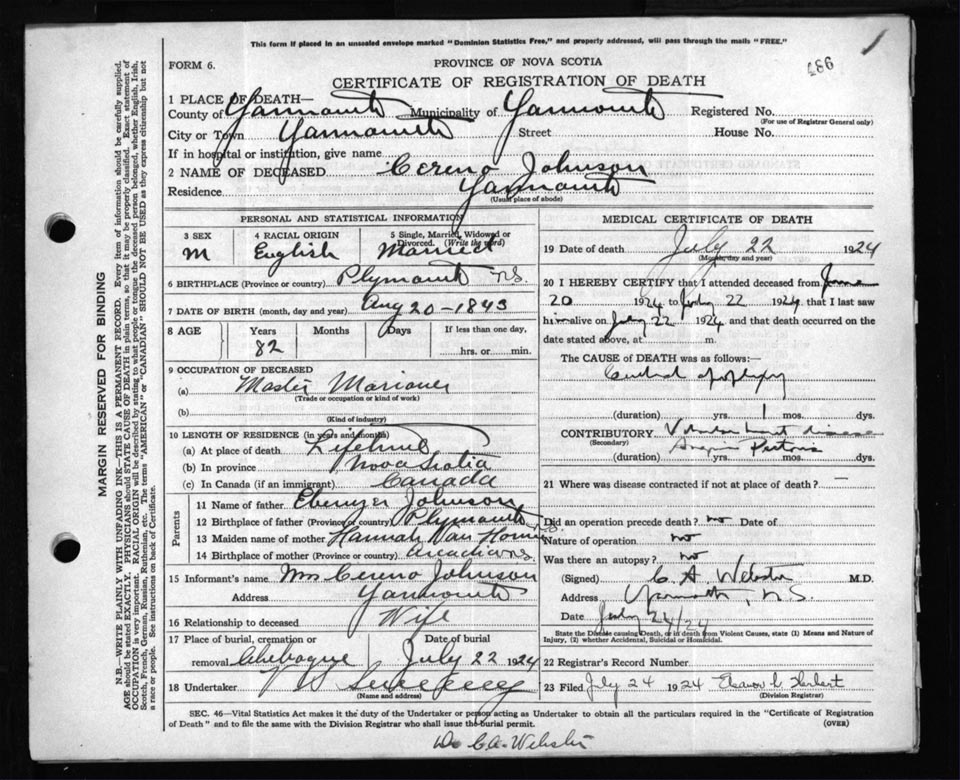 This form if placed in an unsealed envelope marked "Dominion Statistics Free," and properly addressed, will pass through the mails "FREE."
FORM 6.
PROVINCE OF NOVA SCOTIA
CERTIFICATE OF REGISTRATION OF DEATH
1 PLACE OF DEATH—
County of Yarmouth Municipality of Yarmouth Registered No.
(For use of Registrar General only)
City or Town Yarmouth Street House No.
If in hospital or institution, give name
2 NAME OF DECEASED Cereno Johnson
Residence Yarmouth
(Usual place of abode)
PERSONAL AND STATISTICAL INFORMATION
3 SEX 4 RACIAL ORIGIN 5 Single, Married, Widowed or Divorced. (Write the word)
M English Married
6 BIRTHPLACE (Province or country) Plymouth N.S.
7 DATE OF BIRTH (month, day and year) Aug 20-1843
8 AGE Years Months Days If less than one day,
82 hrs. or min.
9 OCCUPATION OF DECEASED
(a) Master Mariner
(Trade or occupation or kind of work)
(b)
(Kind of industry)
10 LENGTH OF RESIDENCE (in years and months)
(a) At place of death Lifetime
(b) In province Nova Scotia
(c) In Canada (if an immigrant) Canada
Parents
11 Name of father Ebenezer Johnson
12 Birthplace of father (Province or country) Plymouth N.S.
13 Maiden name of mother Hannah Van Horne
14 Birthplace of mother (Province or country) N.S.
15 Informant's name Mrs Cereno Johnson
Address Yarmouth
16 Relationship to deceased Wife
17 Place of burial, cremation or removal Chebogue
Date of burial July 22 1924
18 Undertaker V S Sweeney
(Name and address)
MEDICAL CERTIFICATE OF DEATH
19 Date of death July 22 1924
(Month, day and year)
20 I HEREBY CERTIFY that I attended deceased from June
20 1924 to July 22 1924, that I last saw
him alive on July 22 1924 and that death occurred on the
date stated above, at m.
The CAUSE of DEATH was as follows:—
apoplexy
(duration) yrs. 1 mos. dys.
CONTRIBUTORY Valvular heart disease
(Secondary)
(duration) Angina Pectoris yrs. mos. dys.
21 Where was disease contracted if not at place of death? —
Did an operation precede death? no Date of
Nature of operation no
Was there an autopsy? no
(Signed) C. A. Webster M.D.
Address Yarmouth, N.S.
Date July 24/24
State the Disease causing Death, or in death from Violent Causes, state (1) Means and Nature of
Injury, (2) whether Accidental, Suicidal or Homicidal.
22 Registrar's Record Number
23 Filed July 24 1924 Eleanor L Herbert
(Division Registrar)
SEC. 46—Vital Statistics Act makes it the duty of the Undertaker or person acting as Undertaker to obtain all the particulars required in the "Certificate of Registration
of Death" and to file the same with the Division Registrar who shall issue the burial permit.
(OVER)
Dr C.A. Webster
MARGIN RESERVED FOR BINDING
N.B.—WRITE PLAINLY WITH UNFADING INK—THIS IS A PERMANENT RECORD. Every item of information should be carefully supplied.
AGE should be stated EXACTLY. PHYSICIANS should STATE CAUSE OF DEATH in plain terms, so that it may be properly classified. Exact statement of
OCCUPATION is very important. RACIAL ORIGIN will be described by stating to what people or tongue the deceased person belonged, whether English, Irish,
Scotch, French, German, Russian, Ruthenian, etc. The terms "AMERICAN" or "CANADIAN" SHOULD NOT BE USED as they express citizenship but not
a race or people. See instructions on back of Certificate.